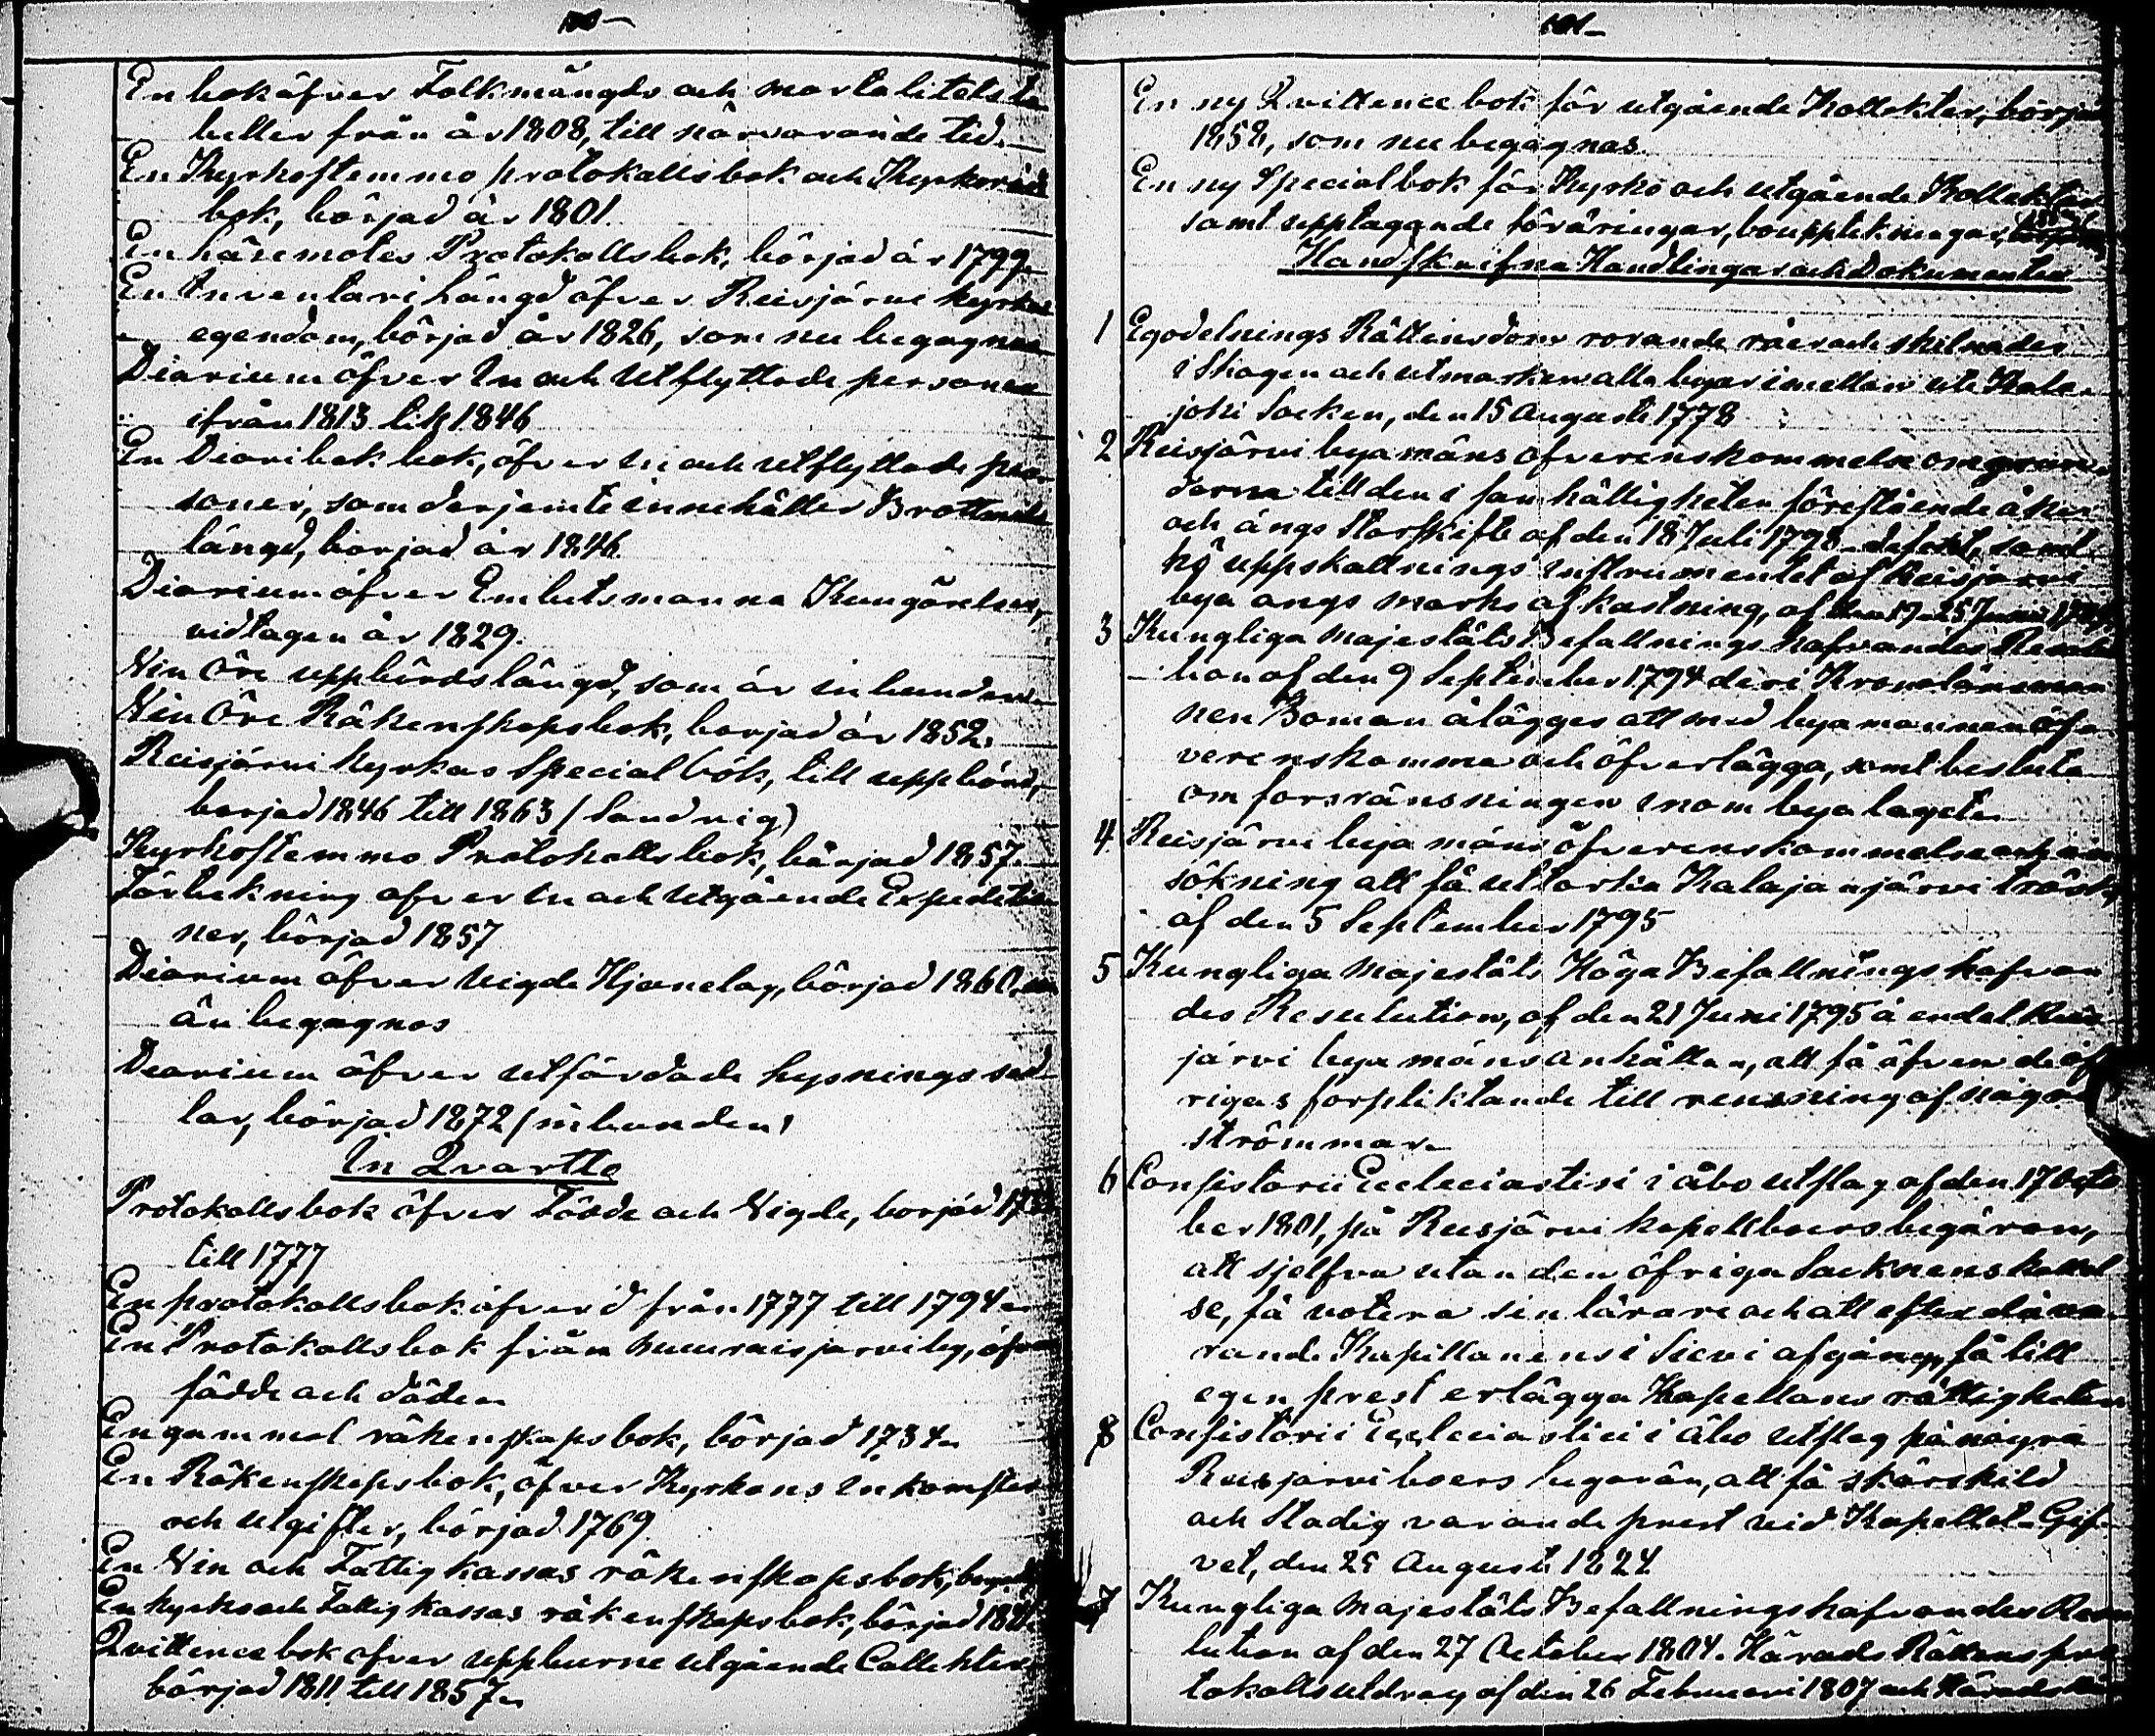 100-
En bok öfver Folkmängds och mortalitets ta
beller från år 1808, till närvarande tid.
En Kyrkostemmo protokollsbok och Kyrkoråds
bok, börjad år 1801.
En häremötes Protokollsbok, börjad år 1799.
En Inventari längd öfver Reisjärvi kyrkas
egendom, börjad år 1826, som nu begagnas
Diarium öfver In och Utflyttade personer
ifrån 1813 till 1846
En Diaribok bok, öfver in och utflyttade per
soner, som derjemte innehåller Brottmåls
längd, börjad år 1846.
Diarium öfver Embetsmanna Kungörelser,
vidtagen år 1829.
Vin Öre uppbördslängd, som är inbunden
Vin Öre Räkenskapsbok, börjad år 1852.
Reisjärvi Kyrkas Special bok, till uppbörd,
börjad 1846 till 1863 (Sandvig)
Kyrkostemmo Protokollsbok, börjad 1857.
Förtekning öfver in och utgående Expeditio
ner, börjad 1857
Diarium öfver Vigde Hjonelag, börjad 1860, som
än begagnas
Diarium öfver utfärdade lysnings sed
lar, börjad 1872 (inbunden)
In Qvartte
Protokollsbok öfver Födde och Vigde, börjad
till 1777
En protokollsbok öfver d från 1777 till 1794.
En Protokollsbok från by, öfver
födde och döde.
En gammal räkenskapsbok, börjad 1734.
En Räkenskapsbok, öfver Kyrkans Inkomster
och utgifter, börjad 1769.
En Vin och Fattigkassas räkenskapsbok,
En kyrko och Fattigkassas räkenskapsbok, börjad
Qvittencebok öfver uppburne utgående Collekter
börjad 1811 till 1857.
101-
En ny Qvittence bok för utgående Kollekter, börjad
1858, som nu begagnas.
En ny Specialbok för Kyrko och utgående Kollekter
samt upptagande föräringar, boupptekningar,
Handskrifna Handlingar och Dokumenter
1 Egodelnings Rättens dom rörande råer och skilnader
i Skogen och utmarken alla byar imellan uti Kala
joki Socken, den 15 Augusti 1778
2 Reisjärvi byamäns öfverenskommelse om
derna till den i samhälligheten föreståënde åker
och ängs Storskifte af den 18 Juli 1798 defekt, samt
hö uppskattnings Instrumentet af Reisjärvi
bya ängs marks afkastning, af den 19-25 Junii
3 Kungliga Majestäts Befallnings hafvandes Resolu
tion af den 9 September 1794 deri Kronolänsman
nen Boman ålägges att med byamannen öf
verenskomma och öfverlägga, samt besluta
om forsränsningen inom bya laget.
4 Reisjärvi bya mäns öfverenskommelse och an
sökning att få uttorka Kalajanjärvi träsk,
af den 5 September 1795
5 Kungliga Majestäts Höga Befallningshafvan
des Resulution, af den 21 Juni 1795 å endel Reis
järvi bya mäns anhållan, att få äfven de öf
rigas förpliktande till rensning af några
strömmar.
6 Consistorii Ecclesiastici i Åbo utslag af den 17 Octo
ber 1801, på Reisjärvi kapellboers begäran,
att sjelfva utan den öfriga Socknens kallel
se, få votera sin lärare och att efter då va
rande Kapellanens i Sievi afgång, få till
egen prest erlägga Kapellans rättigheten
8 Consistorii Ecclesiastici i Åbo utslag på några
Reisjärviboers begäran, att få särskild
och stadigvarande prest vid Kapellet. Gif
vet, den 25 Augusti 1824
7 Kungliga Majestäts Befallningshafvandes Reso
lution af den 27 October 1804. Härads Rättens pro
tokolls utdrag af den 26 Februari 1807 och